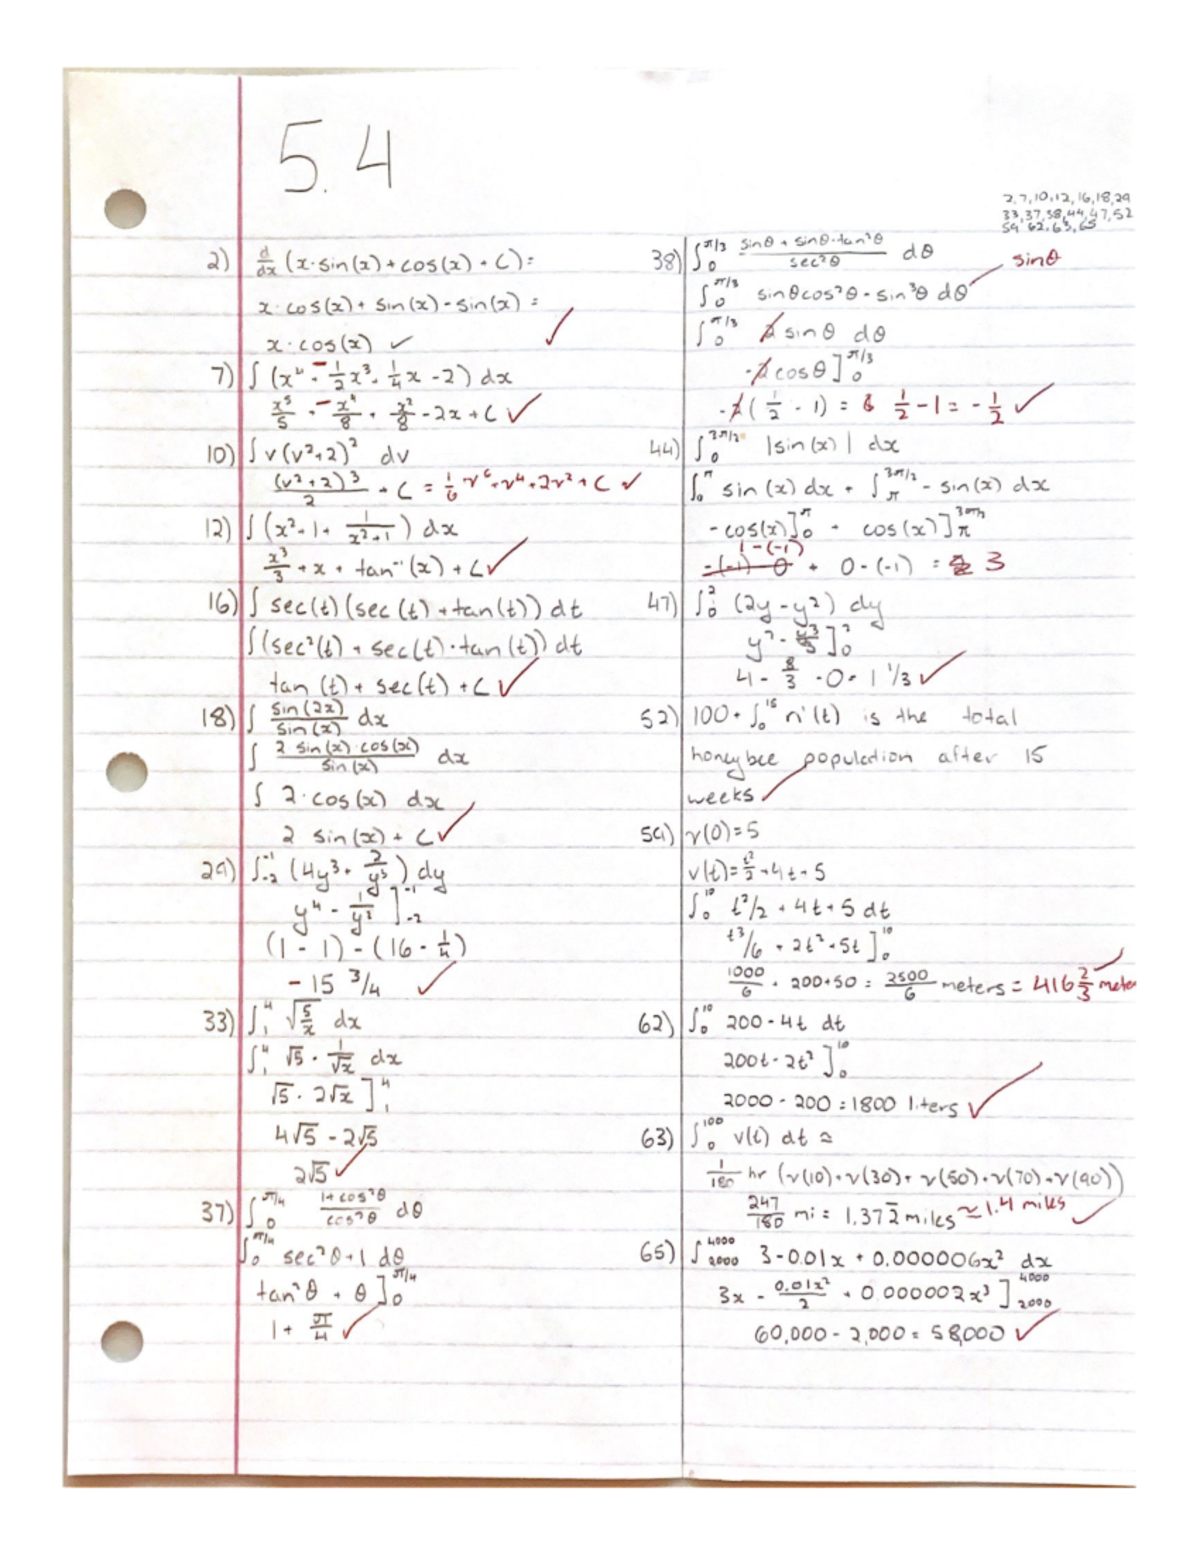 5.4
2, 7, 10, 12, 16, 18, 29
33, 37, 38, 44, 47, 52
59 62, 63, 65
2) d/dx (x·sin(x) + cos(x) + C) =
x·cos(x) + sin(x) - sin(x) =
x·cos(x) ✓
7) ∫ (x⁴ - 1/2 x³ + 1/4 x - 2) dx
x⁵/5 - x⁴/8 + x²/8 - 2x + C ✓
10) ∫ v(v²+2)² dv
(v²+2)³/2 + C = 1/6 v⁶ + v⁴ + 2v² + C ✓
12) ∫ (x² + 1 + 1/(x²+1)) dx
x³/3 + x + tan⁻¹(x) + C ✓
16) ∫ sec(t)(sec(t) + tan(t)) dt
∫ (sec²(t) + sec(t)·tan(t)) dt
tan(t) + sec(t) + C ✓
18) ∫ sin(2x)/sin(x) dx
∫ 2 sin(x)·cos(x)/sin(x) dx
∫ 2·cos(x) dx
2 sin(x) + C ✓
29) ∫₋₂⁻¹ (4y³ + 2/y³) dy
y⁴ - 1/y² ]₋₂⁻¹
(1 - 1) - (16 - 1/4)
- 15 3/4 ✓
33) ∫₁⁴ √(5/x) dx
∫₁⁴ √5 · 1/√x dx
√5 · 2√x ]₁⁴
4√5 - 2√5
2√5 ✓
37) ∫₀^(π/4) (1 + cos²θ)/cos²θ dθ
∫₀^(π/4) sec²θ + 1 dθ
tan²θ + θ ]₀^(π/4)
1 + π/4 ✓
38) ∫₀^(π/3) (sinθ + sinθ·tan²θ)/sec²θ dθ
∫₀^(π/3) sinθcos²θ + sin³θ dθ sinθ
∫₀^(π/3) 2 sinθ dθ
-2 cosθ ]₀^(π/3)
-2(1/2 - 1) = 1/2 - 1 = -1/2 ✓
44) ∫₀^(3π/2) |sin(x)| dx
∫₀^π sin(x) dx + ∫_π^(3π/2) - sin(x) dx
-cos(x)]₀^π + cos(x)]_π^(3π/2)
1 - (-1)
-(-1) - 0 + 0 - (-1) = 2 3
47) ∫₀² (2y - y²) dy
y² - y³/3 ]₀²
4 - 8/3 - 0 = 1 1/3 ✓
52) 100 + ∫₀¹⁵ n'(t) is the total
honeybee population after 15
weeks ✓
59) v(0) = 5
v(t) = t²/2 + 4t + 5
∫₀¹⁰ t²/2 + 4t + 5 dt
t³/6 + 2t² + 5t ]₀¹⁰
1000/6 + 200 + 50 = 2500/6 meters = 416 2/3 meter ✓
62) ∫₀¹⁰ 200 - 4t dt
200t - 2t² ]₀¹⁰
2000 - 200 = 1800 liters ✓
63) ∫₀¹⁰⁰ v(t) dt ≈
1/180 hr (v(10) + v(30) + v(50) + v(70) + v(90))
247/180 mi = 1.372̄ miles ≈ 1.4 miles ✓
65) ∫₂₀₀₀⁴⁰⁰⁰ 3 - 0.01x + 0.000006x² dx
3x - 0.01x²/2 + 0.000002x³ ]₂₀₀₀⁴⁰⁰⁰
60,000 - 2,000 = 58,000 ✓